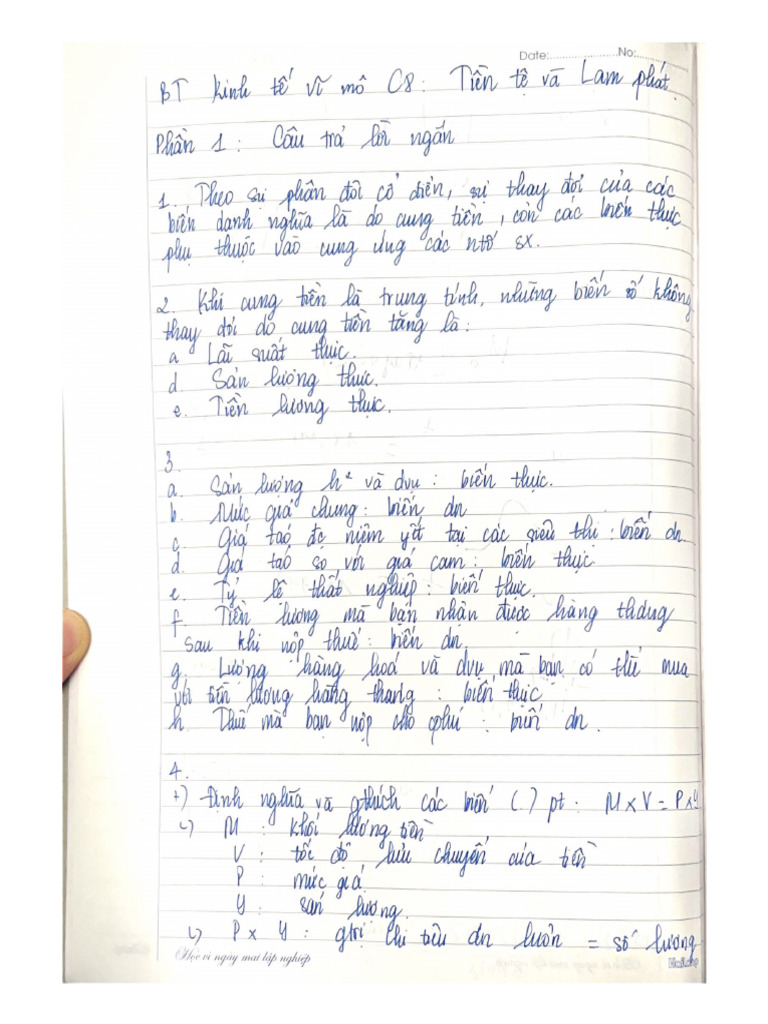 Date:.....................No:....................
BT kinh tế vĩ mô C8: Tiền tệ và Lam phát.
Phần 1: Câu trả lời ngắn
1. Theo sự phân đôi cổ điển, sự thay đổi của các
biến danh nghĩa là do cung tiền, còn các biến thực
phụ thuộc vào cung ứng các ntố sx.
2. Khi cung tiền là trung tính, những biến số không
thay đổi do cung tiền tăng là:
a Lãi suất thực.
d. Sản lượng thực.
e. Tiền lương thực.
3.
a. Sản lượng h² và dvụ: biến thực.
b. Mức giá chung: biến dn
c. Giá táo đc niêm yết tại các siêu thị: biến dn
d. Giá táo so với giá cam: biến thực
e. Tỷ lệ thất nghiệp: biến thực.
f. Tiền lương mà bạn nhận được hàng tháng
sau khi nộp thuế: biến dn.
g. Lượng hàng hoá và dvụ mà bạn có thể mua
với tiền lương hàng tháng: biến thực
h. Thuế mà bạn nộp cho cphủ: biến dn.
4.
+) Định nghĩa và gthích các biến (.) pt: M x V = P x Y
↳ M: khối lượng tiền
V: tốc độ lưu chuyển của tiền
P: mức giá
Y: sản lượng.
↳ P x Y: gtrị chi tiêu dn luôn = số lượng
Học vì ngày mai lập nghiệp